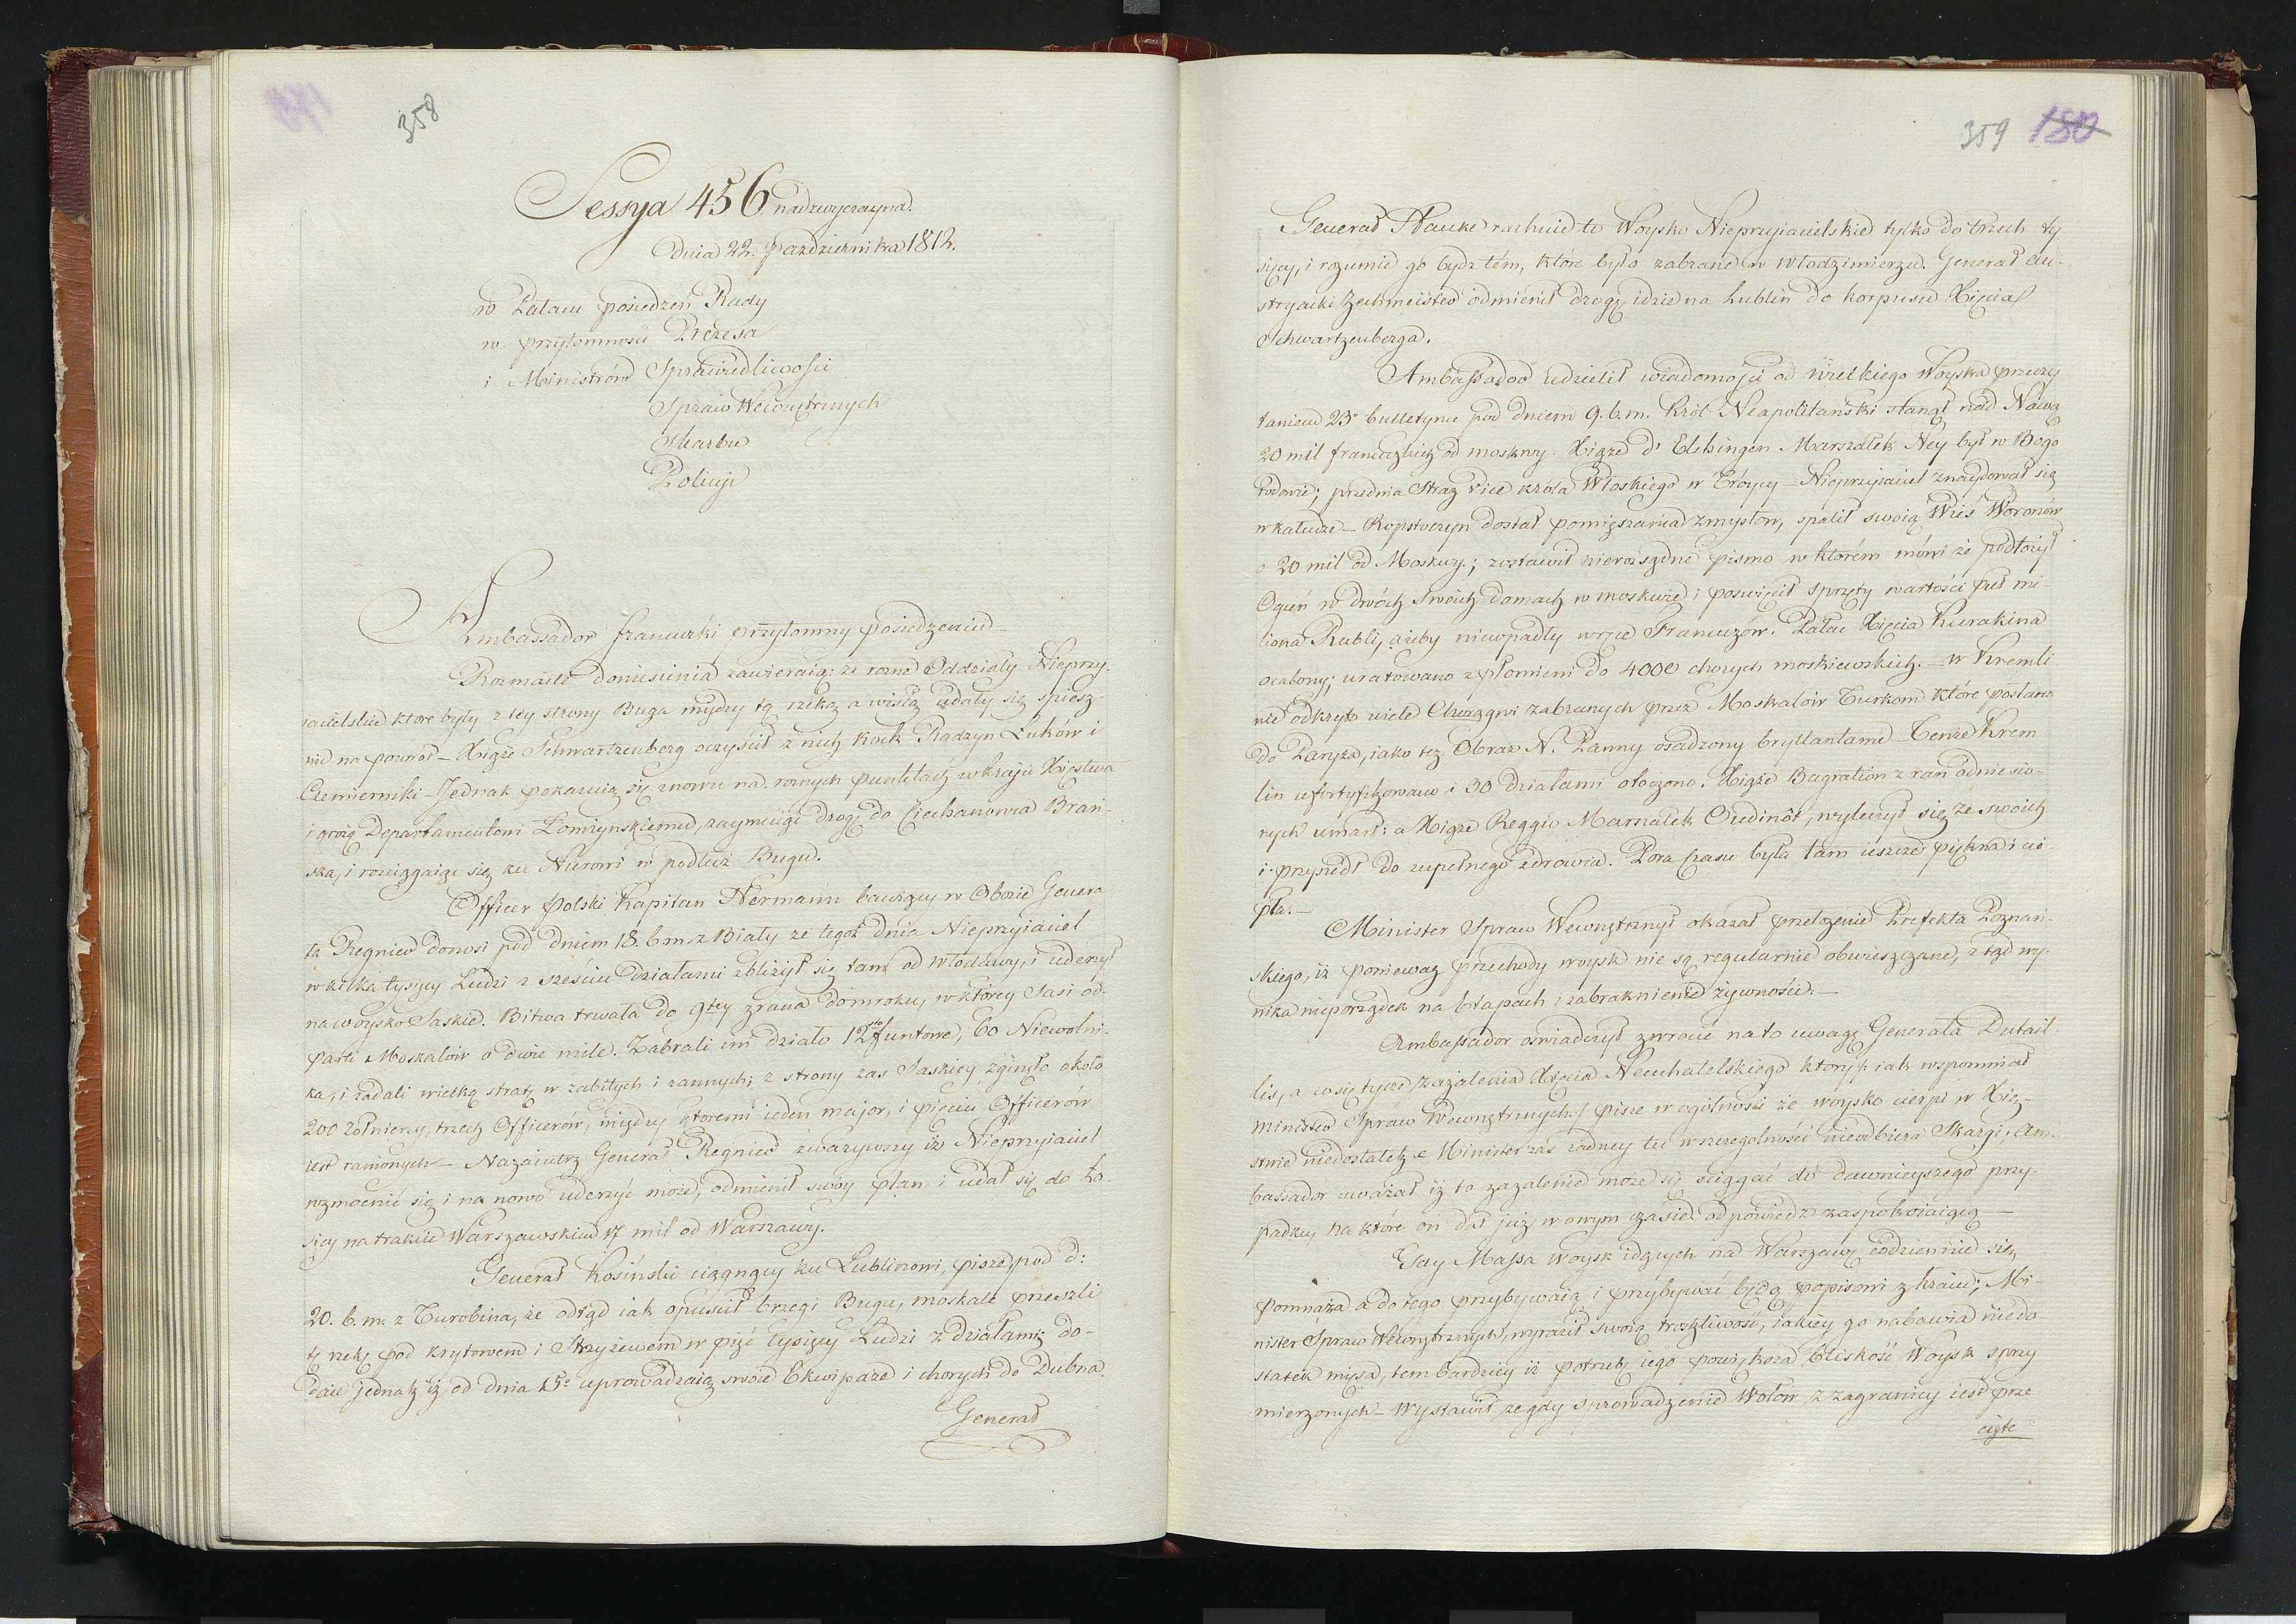 358
Sessya 456 nadzwyczayna.
Dnia 22. Października 1812.
w Pałacu posiedzeń Rady
w przytomności Prezesa
i Ministrów Sprawiedliwości
Spraw Wewnętrznych
Skarbu
Policyi
Ambassador francuzki przytomny posiedzeniu –
Rozmaite doniesienia zawieraią: że rożne Oddziały Nieprzy-
iacielskie ktore były z tey strony Buga między tą rzeką a wisłą udały się spiesz-
nie na powrot – Xiąże Schwartzenberg oczyścił z nich Kock Radzyn Łuków i
Czemierniki – Jednak pokazuią się znowu na rożnych punktach w kraju Xięstwa
i grożą Departamentowi Łomżynskiemu, zaymuiąc drogę do Ciechanowca Brań-
ska, i rozciągaiąc się ku Nurowi w podłuż Bugu.
Officer polski Kapitan Hermann bawiący w Obozie Genera
ła Regnier donosi pod dniem 18. b. m. z Biały że tegoż dnia Nieprzyiaciel
w kilka tysięcy Ludzi z sześciu działami zbliżył się tam od Włodawy, i uderzył
na woysko Saskie. Bitwa trwała do 9tey zrana do mroku, w którey Sasi od-
parli Moskalów o dwie mile. Zabrali im działo 12sto funtowe, 60 Niewolni-
ka, i zadali wielką stratę w zabitych i rannych; z strony zas Saskiey zginęło około
200 żołnierzy, trzech Officerów, między ktoremi ieden major, i pięciu Officerów
iest ranionych – Nazaiutrz Generał Regnier zważywszy iż Nieprzyiaciel
wzmocnić się i na nowo uderzyć może, odmienił swóy plan, i udał się do Ło
sicy na trakcie Warszawskim 17 mil od Warszawy.
Generał Kosiński ciągnący ku Lublinowi, pisze pod d:
20. b. m. z Turobina, że odtąd iak opuścił brzegi Bugu, moskale przeszli
tę rzekę pod Kryłowem i Strzyżewem w pięć tysięcy Ludzi z działami do-
daie jednak iż od dnia 15o uprowadzaią swoie Ekwipaże i chorych do Dubna.
Generał
359 180
Generał Hauke rachuie to Woysko Nieprzyiacielskie tylko do trzech ty
sięcy, i rozumie go bydz tém, które było zabrane w Włodzimierzu. Generał au-
stryacki Zechmeister odmienił drogę, idzie na Lublin do korpusu Xięcia
Schwartzenberga.
Ambassador udzielił wiadomości od wielkiego Woyska przeczy
taniem 25o bulletynu pod dniem 9. b. m. Król Neapolitański stanął nad Narą
20 mil francuzkich od moskwy. Xiąże d' Elchingen Marszałek Ney był w Bogo
rodowie; przednia Straż vice króla Włoskiego w Tróycy – Nieprzyiaciel znaydował się
w kałudze – Ropstoczyn dostał pomięszania zmysłow, spalił swoią Wieś Woronów
o 20 mil od Moskwy; zostawił nierozsądne pismo w ktorém mówi że podłożył
Ogień w dwóch swoich domach w moskwie i poswięcił sprzęty wartości puł mi-
liona Rubli, ażeby niewpadły wręce Francuzów. Pałac Xięcia Kurakina
ocalony; uratowano z płomieni do 4000 chorych moskiewskich. – w Kremli
nie odkryto wiele Chorągwi zabranych przez Moskalów Turkom które posłano
do Paryża, iako też Obraz N. Panny osadzony bryllantami – Tenże Krem
lin ufortyfikowano i 30 działami otoczono. Xiąże Bagration z ran odniesio-
nych umarł: a Xiąże Reggio Marszałek Oudinôt, wyleczył się ze swoich
i przyszedł do zupełnego zdrowia. Pora czasu była tam ieszcze piękna i cie-
pła. –
Minister Spraw Wewnętrznych okazał przełożenie Prefekta Poznań-
skiego, iż ponieważ przechody woysk nie są regularnie obwieszczane, z tąd wy-
nika nieporządek na Etapach i zabraknienie żywności. –
Ambassador oświadczył zwrocić na to uwagę Generała Dutail-
lis, a co się tycze zażalenia Xięcia Neuchatelskiego który /: iak wspomniał
minister Spraw Wewnętrznych :/ pisze w ogólności że woysko cierpi w Xię-
stwie niedostatek a Minister zas żadney tu w szczegolności nieodbiera Skargi, Am-
bassador uważał iż to zażalenie może się ściągać do dawnieyszego przy-
padku, na które on dał już w owym czasie odpowiedz zaspokoiaiącą –
Gdy Massa Woysk idących na Warszawę codziennie się
pomnaża a do tego przybywaią i przybywać będą popisowi z kraiu; Mi-
nister Spraw Wewnętrznych, wyraził swoią troskliwość, iakiey go nabawia niedo
statek mięsa, tem bardziey iż potrzeby iego powiększa bliskość Woysk sprzy
mierzonych – Wystawił że gdy sprowadzenie Wołow z zagranicy iest prze
cięte